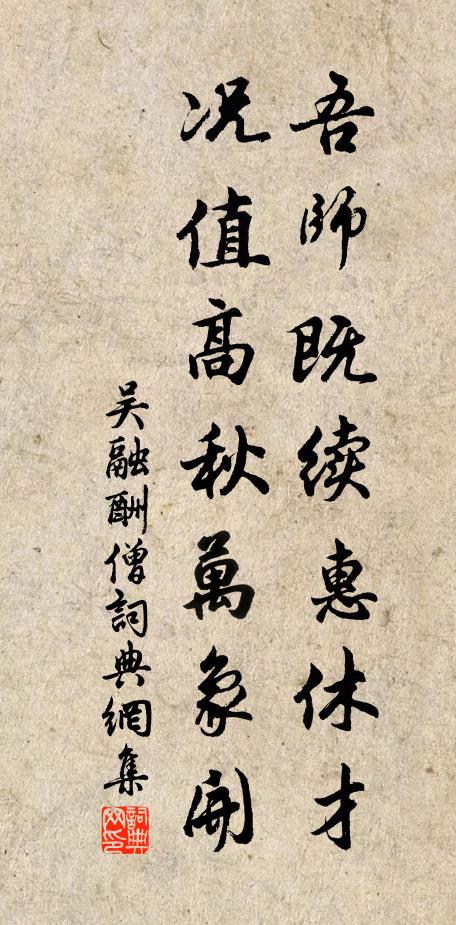 吾師既续惠休才
况值高秋萬象開
吴融酬僧詞典網集
詞典
网印